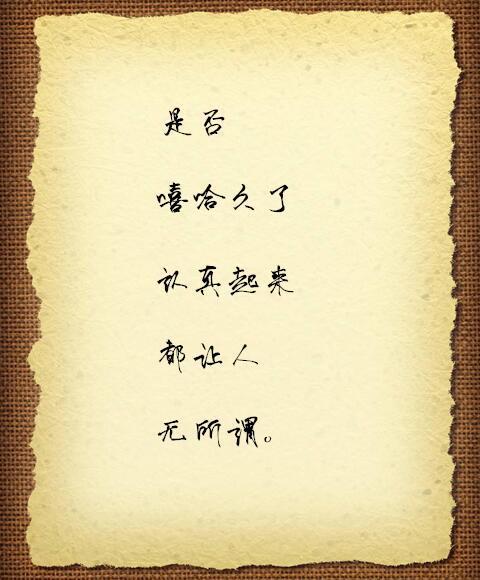 是否
嘻哈久了
认真起来
都让人
无所谓。